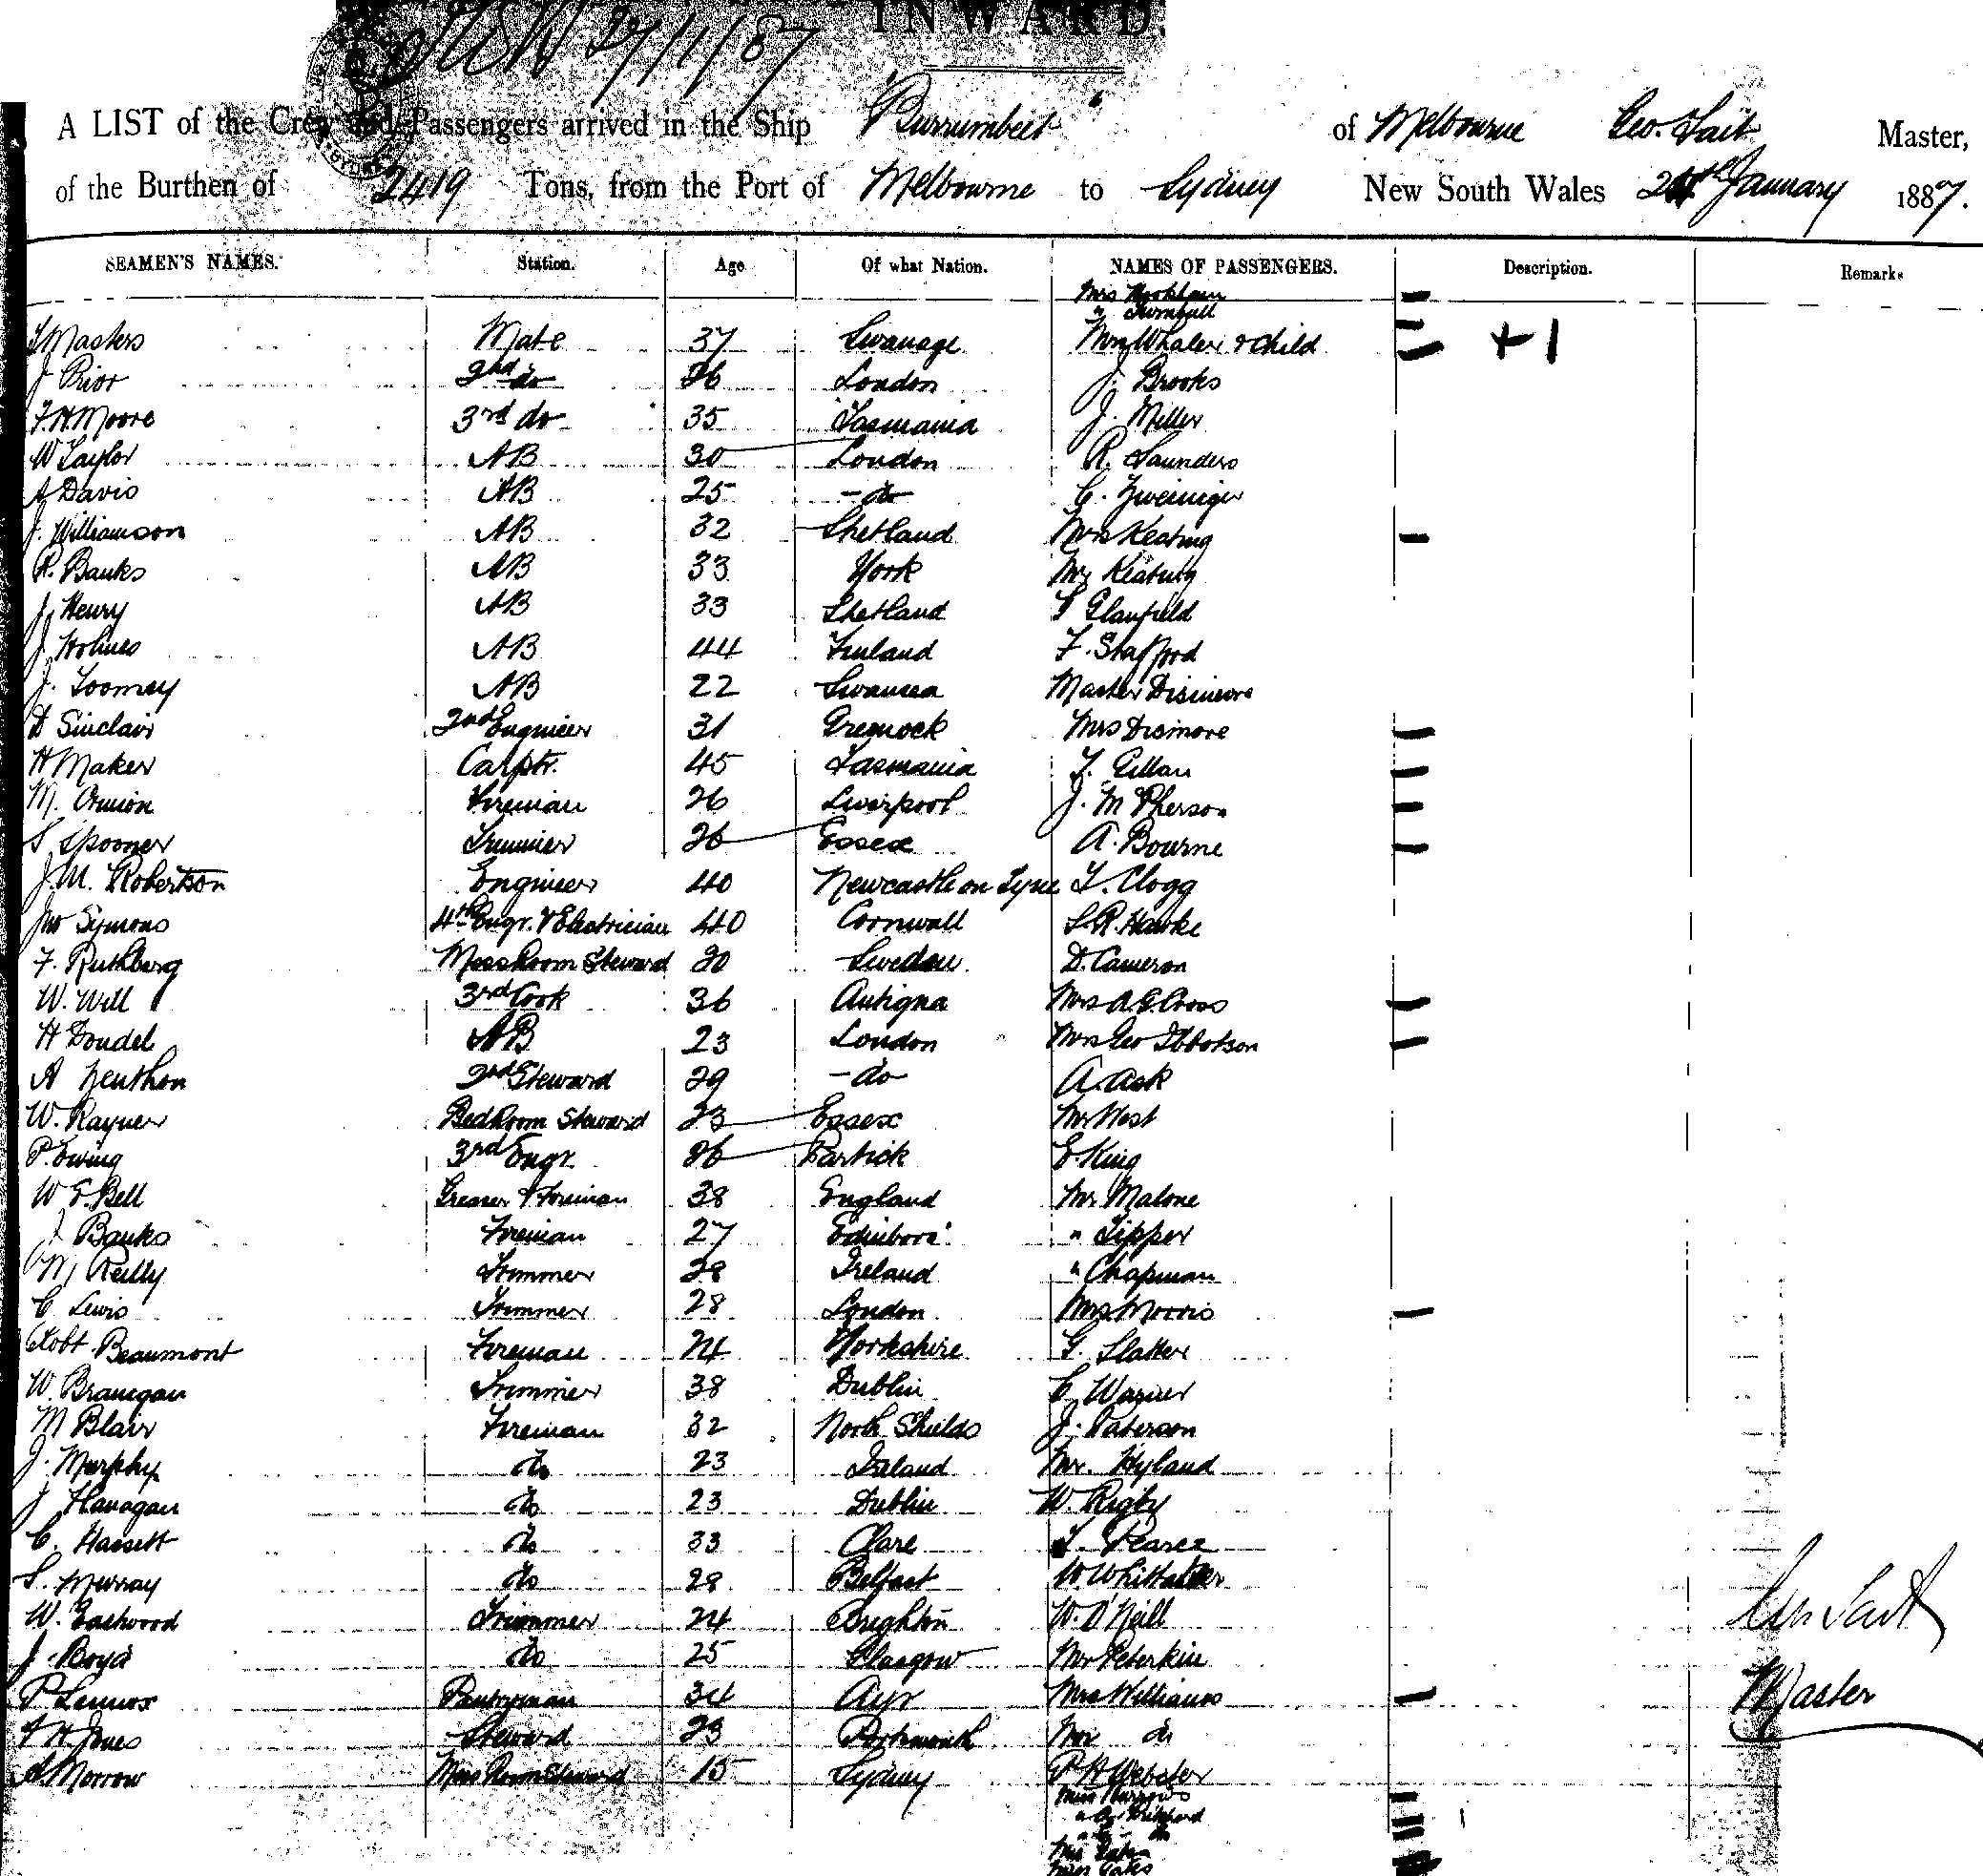 INWARD.
A LIST of the Crew and Passengers arrived in the Ship "Burrumbeet" of Melbourne Geo. Tait Master,
of the Burthen of 2419 Tons, from the Port of Melbourne to Sydney New South Wales January 1887.
SEAMEN'S NAMES. Station. Age Of what Nation. NAMES OF PASSENGERS. Description. Remarks
Mrs
" Turnbull
Masters Mate 37 Swanage Mrs Whaler & Child + 1
J Prior 2nd do 26 London J. Brooks
F. H. Moore 3rd do 35 Tasmania J. Miller
W Taylor AB 30 London R. Saunders
A Davis AB 25 - do C. Zweiniger
J. Williamson AB 32 Shetland Mrs Keating
R. Banks AB 33 York Mr Keating
J. Henry AB 33 Shetland S Glanfield
J. Holmes AB 44 Finland F. Stafford
J. Toomey AB 22 Swansea Master Disimore
D Sinclair 2nd Engineer 31 Greenock Mrs Dismore
H Maker Carptr. 45 Tasmania T. Gillan
M. Fireman 26 Liverpool J. McPherson
S. Spooner Trimmer 26 Essex A. Bourne
J. M. Robertson Engineer 40 Newcastle on Tyne T. Clogg
Jno Symons 4th Engr. & Electrician 40 Cornwall S. R. Hawke
F. Ruthberg Mess Room Steward 20 Sweden D. Cameron
W. Will 3rd Cook 36 Antigua Mrs A. G. Cross
H Doudel AB 23 London Mrs Geo Ibbotson
A Zeuthon 2nd Steward 29 - do A. Ask
W. Rayner BedRoom Steward 23 Essex Mr West
P. Ewing 3rd Engr. 26 Partick E. King
W. E. Bell Greaser & Fireman 38 England Mr. Malone
J Banks Fireman 27 Edinboro' " Tipper
M Reilly Trimmer 28 Ireland " Chapman
C Lewis Trimmer 28 London Mrs Morris
Robt. Beaumont Fireman 24 Yorkshire G. Slatter
W. Branigan Trimmer 38 Dublin C Warner
M Blair Fireman 32 North Shields J. Paterson
J. Murphy do 23 Ireland Mr. Hyland
J Flanagan do 23 Dublin W. Rigby
C. Hassett do 33 Clare Pearce
S. Murray do 28 Belfast W Whittaker
W. Eastwood Trimmer 24 Brighton W. O'Neill
J. Boyd do 25 Glasgow Mr Peterkin
P. Lennox Pantryman 34 Ayr Mrs Williams
F H Jones Steward 23 Portsmouth Mr do
A. Morrow Mess Room Steward 15 Sydney P. H Webster
Miss Burrows
Geo Tait
Master